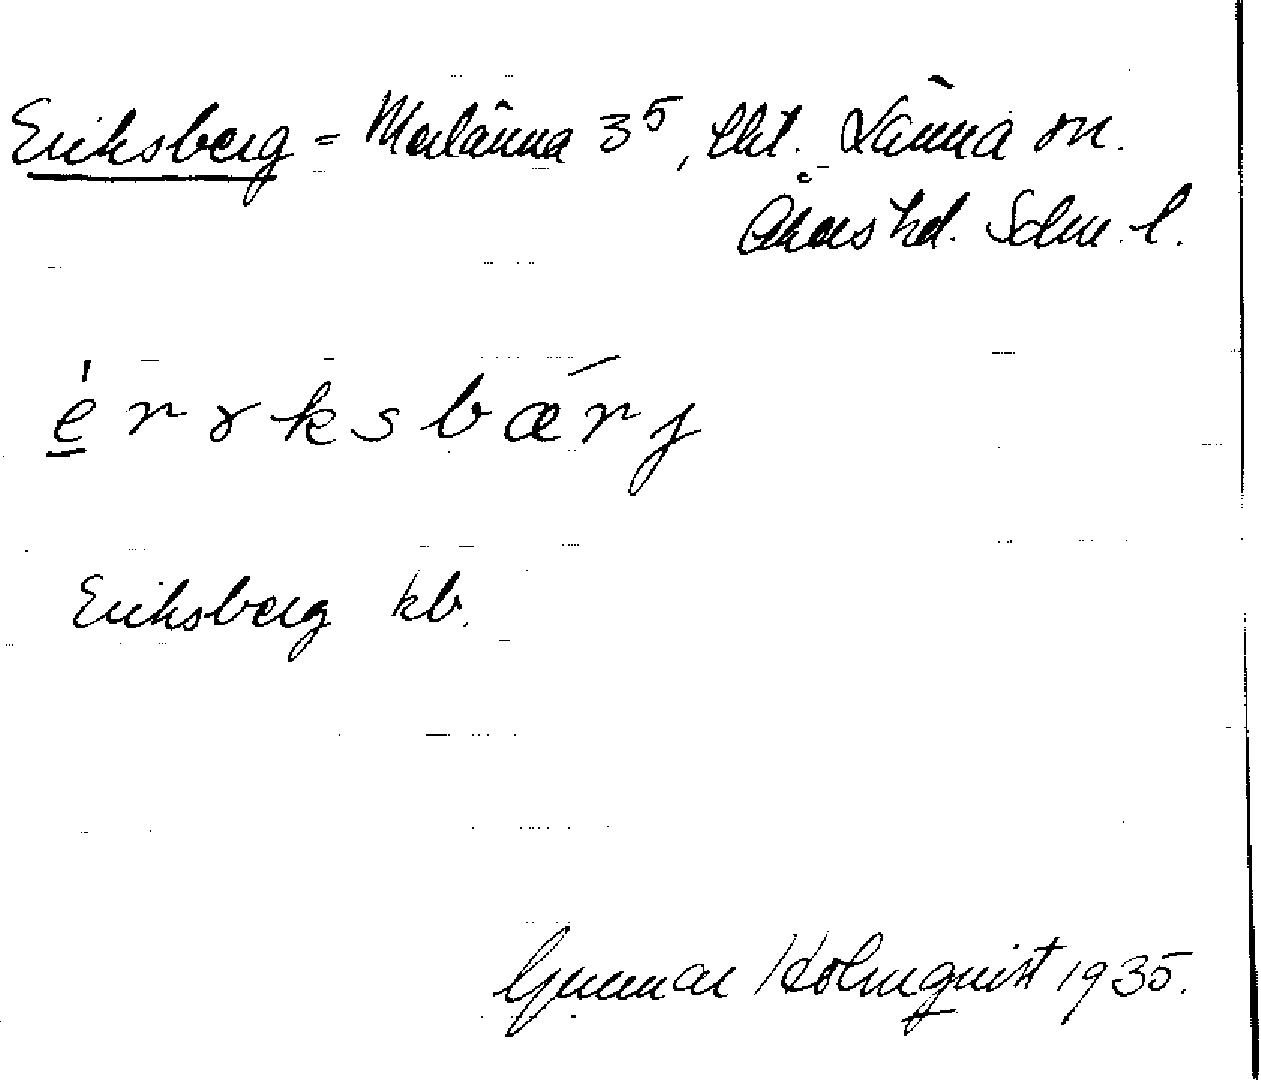 Eriksberg = Merlänna 3⁵, lht. Länna sn.
Åkers hd. Sdm. l.
e̲̍rɤksbǽrj
Eriksberg kb.
Gunnar Holmquist 1935.